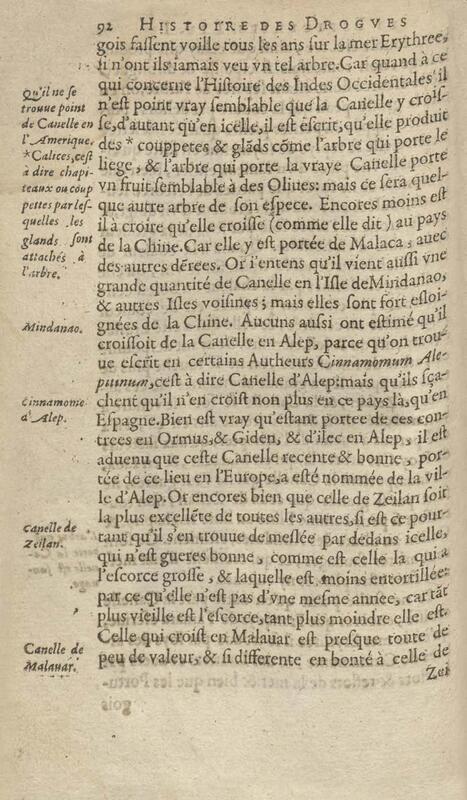 92 HISTOIRE DES DROGVES
gois fassent voille tous les ans sur la mer Erythree,
si n'ont ils iamais veu vn tel arbre. Car quand à ce
qui concerne l'Histoire des Indes Occidentales il
n'est point vray semblable que la Canelle y crois-
se, d'autant qu'en icelle, il est escrit, qu'elle produit
des * couppetes & glãds cõme l'arbre qui porte le
liege, & l'arbre qui porte la vraye Canelle porte
vn fruit semblable à des Oliues: mais ce sera quel-
que autre arbre de son espece. Encores moins est
il à croire qu'elle croisse (comme elle dit) au pays
de la Chine. Car elle y est portée de Malaca, auec
des autres dérées. Or i'entens qu'il vient aussi vne
grande quantité de Canelle en l'Isle de Mindanao,
& autres Isles voisines; mais elles sont fort esloi-
gnées de la Chine. Aucuns aussi ont estimé qu'il
croissoit de la Canelle en Alep, parce qu'on trou-
ue escrit en certains Autheurs Cinnamomum Ale-
pinum, c'est à dire Canelle d'Alep: mais qu'ils sça-
chent qu'il n'en croist non plus en ce pays là, qu'en
Espagne. Bien est vray qu'estant portee de ces con-
trees en Ormus, & Giden, & d'ilec en Alep, il est
aduenu que ceste Canelle recente & bonne, por-
tée de ce lieu en l'Europe, a esté nommée de la vil-
le d'Alep. Or encores bien que celle de Zeilan soit
la plus excellẽte de toutes les autres, si est ce pour-
tant qu'il s'en trouue de meslée par dedans icelle,
qui n'est gueres bonne, comme est celle la qui a
l'escorce grosse, & laquelle est moins entortillée:
par ce qu'elle n'est pas d'vne mesme annee, car tãt
plus vieille est l'escorce, tant plus moindre elle est.
Celle qui croist en Malauar est presque toute de
peu de valeur, & si differente en bonté à celle de
Zei
Qu'il ne se
trouue point
de Canelle en
l'Amerique.
*Calices, cest
à dire chapi-
teaux ou coup
pettes par les-
quelles les
glands sont
attachés à
l'arbre.
Mindanao.
Cinnamome
d'Alep.
Canelle de
Zeilan.
Canelle de
Malauar.